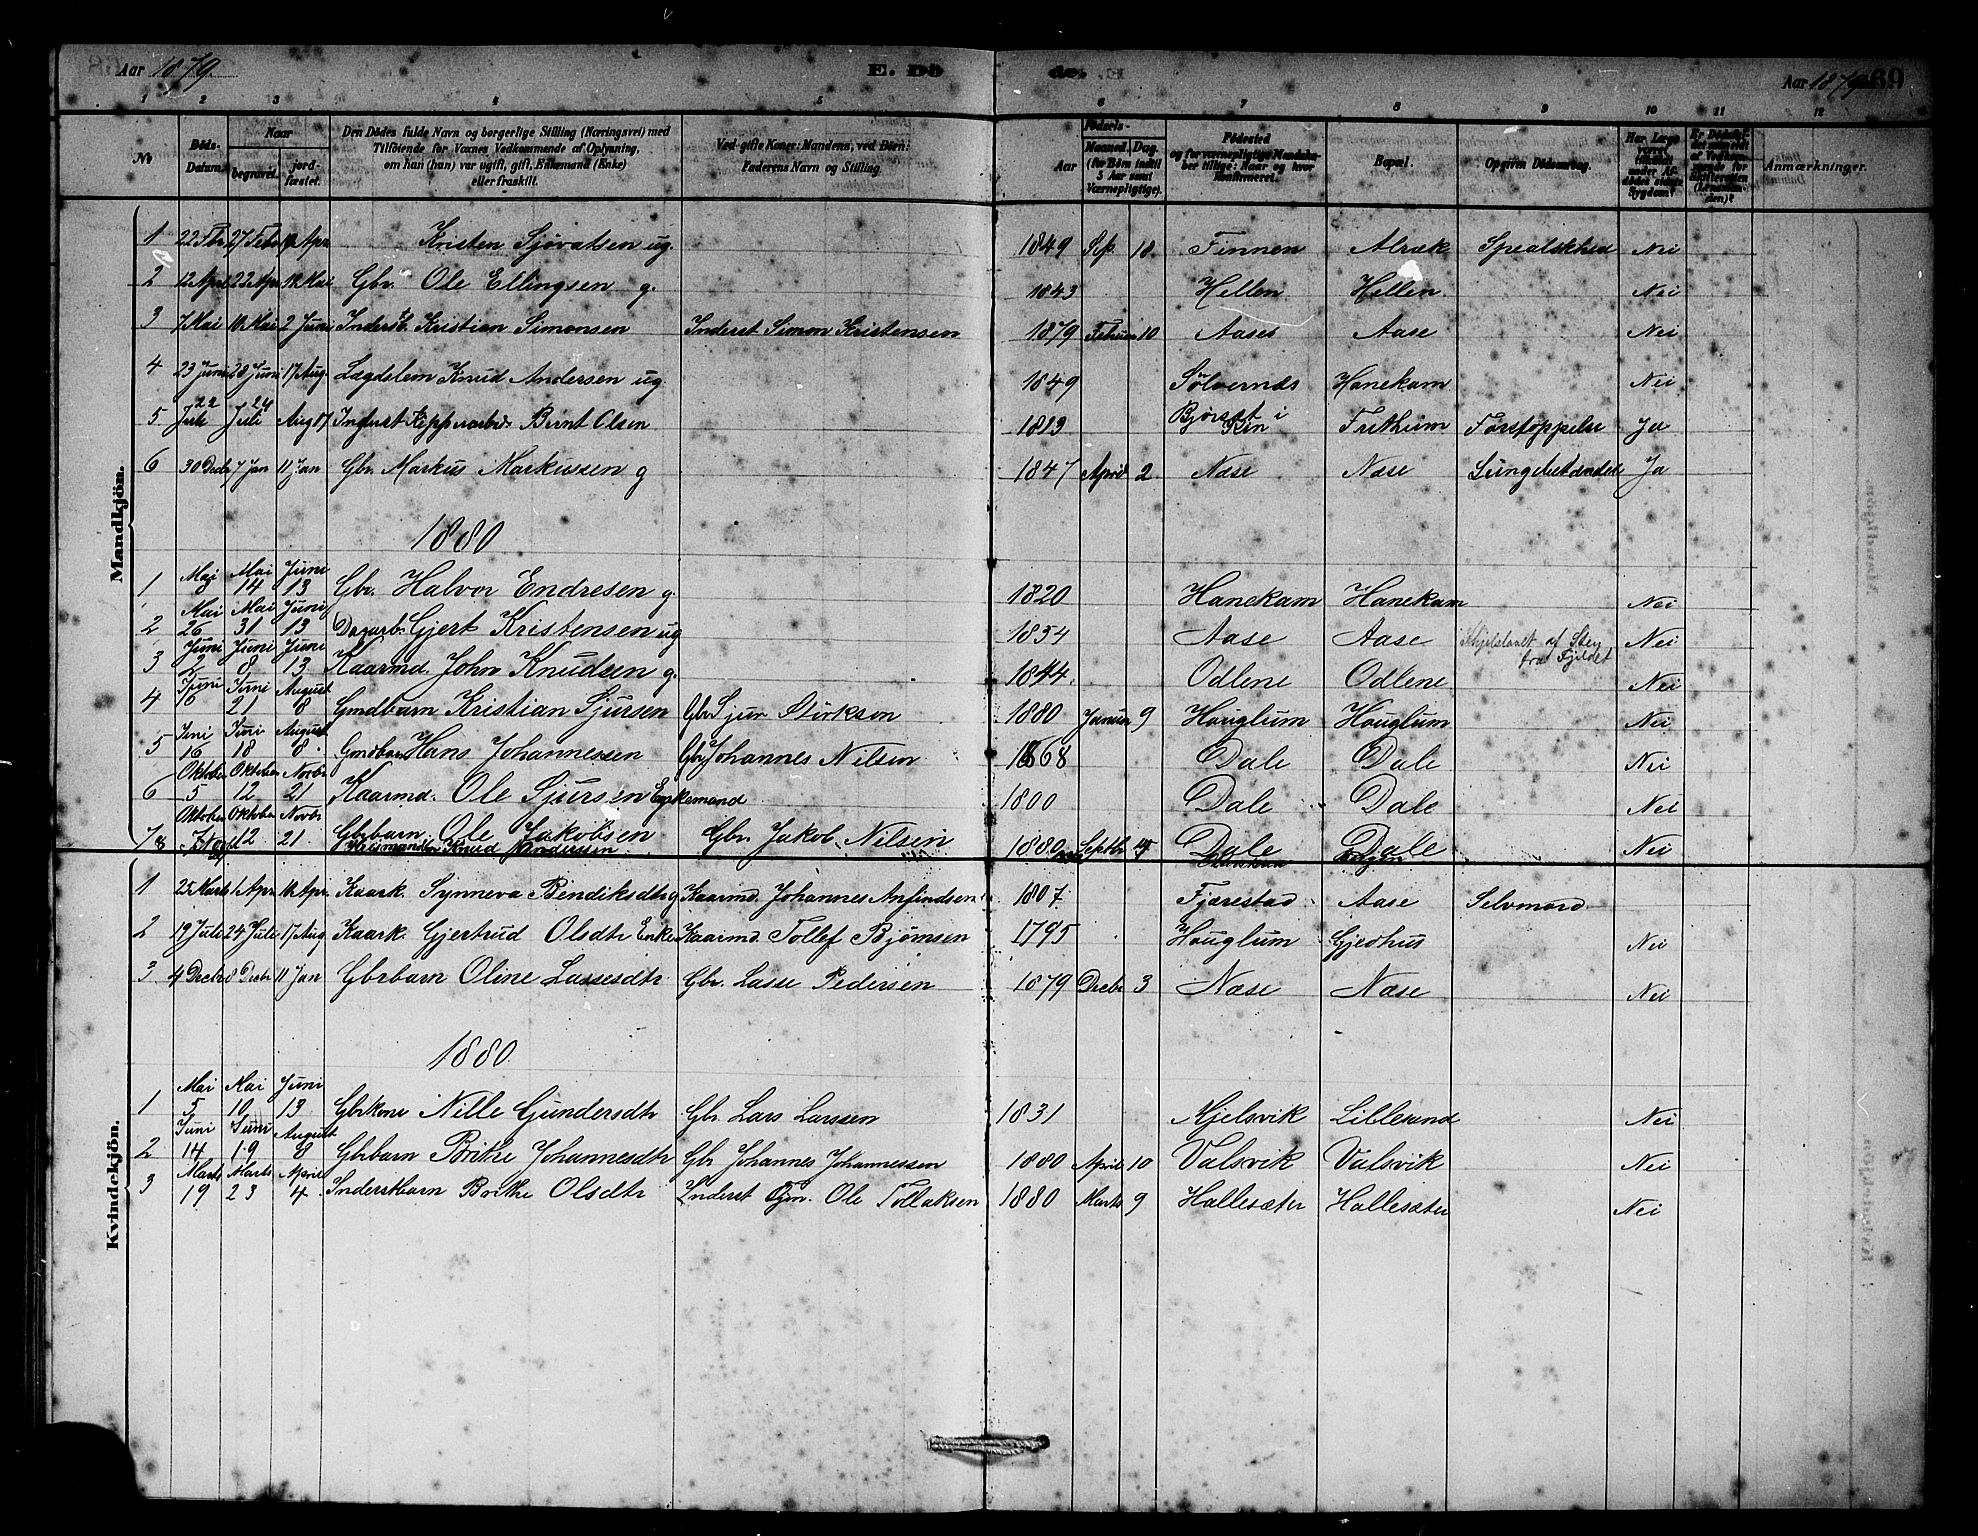 Aar 1879. E. Dö de. Aar 1879 69
1 2 3 4 5 6 7 8 9 10 11 12
No Döds-Datum. Naar begravet. jordfæstet. Den Dödes fulde Navn og borgerlige Stilling (Næringsvei) med Tilföiende for Voxnes Vedkommende af Oplysning, om han (hun) var ugift, gift, Enkemand (Enke) eller fraskilt. Ved gifte Koner: Mandens, ved Börn: Faderens Navn og Stilling. Födsels- Aar Maaned. Dag. (for Börn indtil 5 Aar samt Værnepligtige). Födested og for værnepligtige Mandskaber tillige: Naar og hvor Konfirmeret. Bopæl. Opgiven Dödsaarsag. Har Læge været tilkaldt under Afdödes sidste Sygdom? Er Dödsfaldet anmeldt af Vedkommende for Skifteretten (Lensmanden)? Anmærkninger.
Mandkjön.
1 22 Fbr 27 Febr Apr Kristen Sjøvatsen ug. 1849 Sep. 18. Finnen Alræk Spedalskhed Nei
2 12 April 22 Apr 18 Mai Gbr. Ole Ellingsen g. 1843 Hellen Hellen Nei
3 7 Mai Mai 2 Juni Inderstb. Kristian Simonsen Inderst Simon Kristensen 1879 Februar 10 Aase Aase Nei
4 23 Juni 28 Juni 17 Aug. Lægdslem Knud Andersen ug 1849 Sølvernæs Hanekam Nei
5 22 Juli 24 Juli Aug 17 Bernt Olsen 1813 Bjørset i Kin Fretheim Forstoppelse Ja
6 30 Decbr 7 Jan 11 Jan Gbr. Markus Markussen g 1847 April 2 Næse Næse Lungebetændelse Ja
1880
1 Mai Mai 14 Juni 13 Gbr. Halvor Endresen g. 1820 Hanekam Hanekam Nei
2 Mai 26 Mai 31 Juni 13 Dagarb. Gjert Kristensen ug 1854 Aase Aase Ihjelslaaet af Sten fra Fjeldet Nei
3 Juni 2 Juni 8 Juni 13 Kaarmd. John Knudsen g. 1844. Odlene Odlene Nei
4 Juni 16 Juni 21 August 8 Gmdbarn Kristian Sjursen Gbr Sjur Størkson 1880 Januar 9 Houglum Houglum Nei
5 Juni 16 Juni 18 August 8. Gmdbarn Hans Johannessen Gbr Johannes Nilsen 1868 Dale Dale Nei
6 Oktober 5 Oktober 12 Novbr 21 Kaarmd. Ole Sjursen Enkemand 1800 Dale Dale Nei
7 Oktober 7 Oktober 12 Novbr 21. Gbrbarn. Ole Jakobsen Gbr. Jakob Nilsen 1880 Septbr Dale Dale Nei
8 Knud Andersen.
Kvindekjön.
1 25 Marts 1 Apr 12 Apr. Kaark. Synneva Bendiksdtr g Kaarmd. Johannes Anfindsen 1807 Fjærestad Aase Selvmord
2 19 Juli 24 Juli 17 Aug Kaark. Gjertrud Olsdtr Enke Kaarmd. Tollef Bjørnsen 1795 Houglum Gjedhus Nei
3. 4 Decbr 8 Decbr 11 Jan Gbrbarn Oline Lassesdtr. Gbr. Lasse Pedersen 1879 Decbr 3 Næse Næse Nei
1880
1 Mai 5 Mai 10 Juni 13 Gbrkone Nille Gundersdtr Gbr. Lars Larssen 1831 Hjelsvik Lillesand Nei
2 Juni 14 Juni 19 August 8 Gbrbarn Brithe Johannesdtr Gbr Johannes Johannessen 1880 April 10 Valsvik Valsvik Nei
3 Marts 19 Marts 23 April 4 Inderstbarn Brithe Olsdtr Inderst Ole Tollaksen 1880 Marts 9 Hallesæter Hallesæter Nei